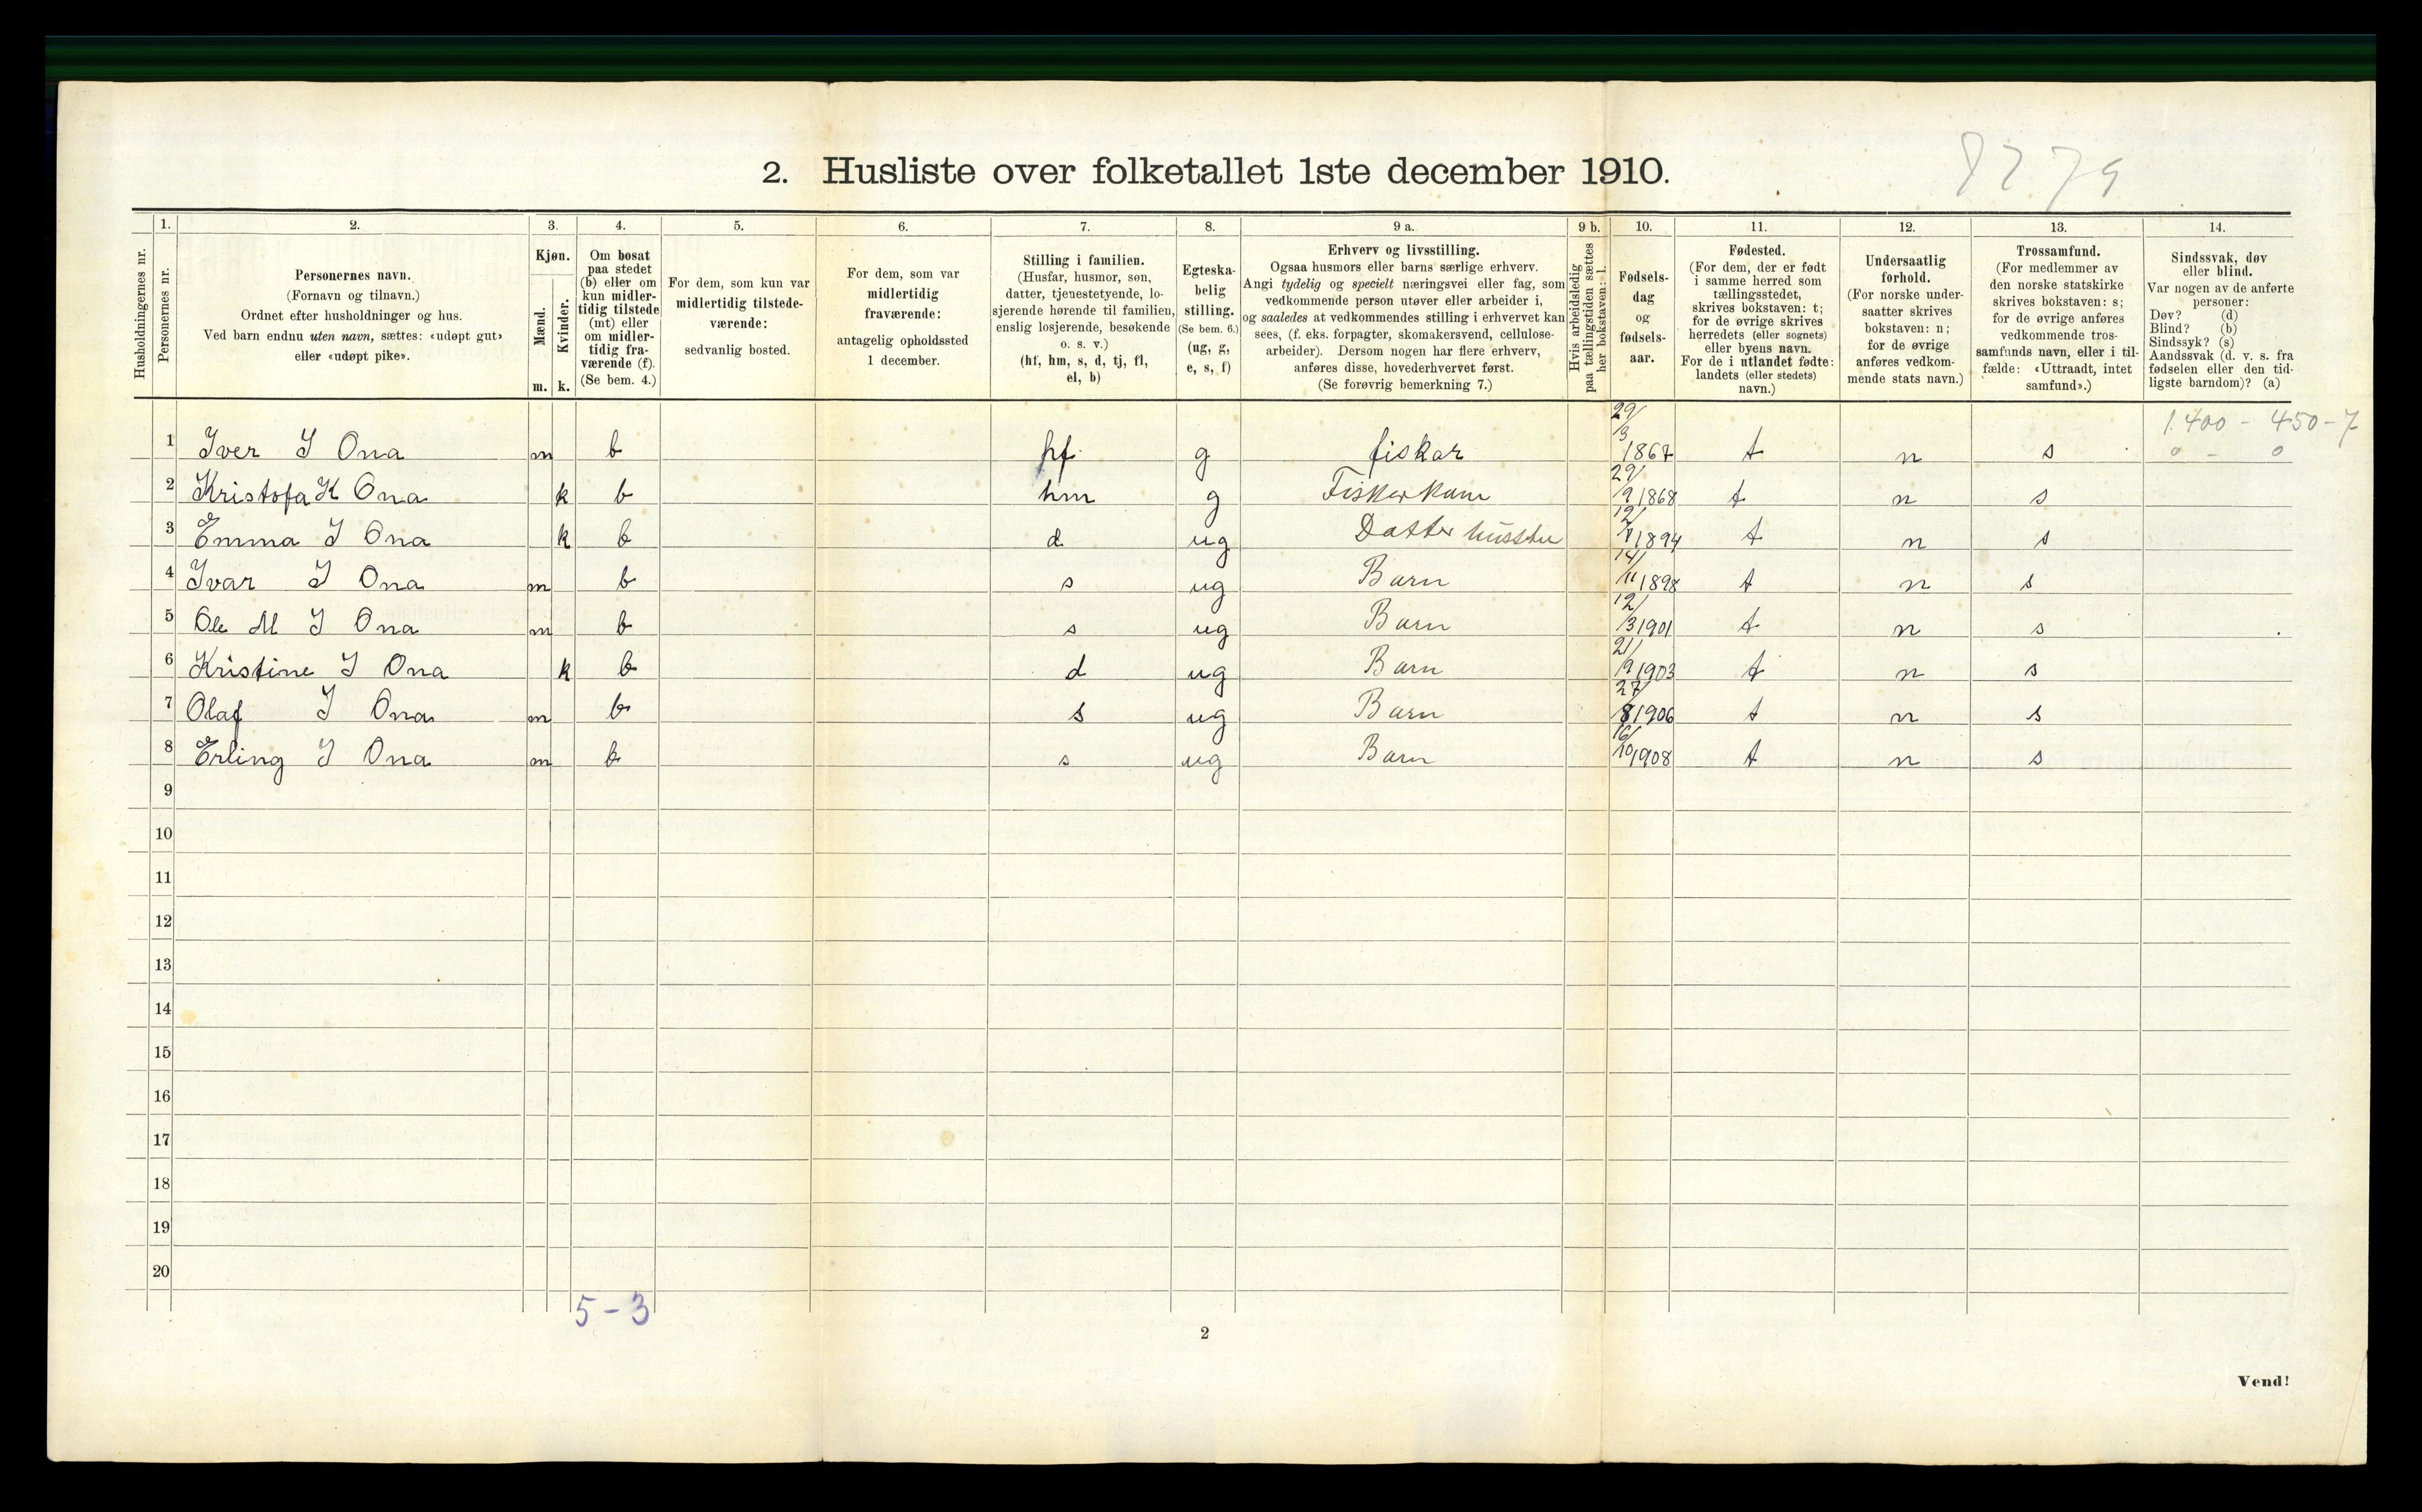 8279
2. Husliste over folketallet 1ste december 1910.
Husholdningernes nr.
1.
Personernes nr.
2.
Personernes navn.
(Fornavn og tilnavn.)
Ordnet efter husholdninger og hus.
Ved barn endnu uten navn, sættes: «udøpt gut»
eller «udøpt pike».
3.
Kjøn.
Mænd.
Kvinder.
m. k.
4.
Om bosat
paa stedet
(b) eller om
kun midler-
tidig tilstede
(mt) eller
om midler-
tidig fra-
værende (f).
(Se bem. 4.)
5.
For dem, som kun var
midlertidig tilstede-
værende:
sedvanlig bosted.
6.
For dem, som var
midlertidig
fraværende:
antagelig opholdssted
1 december.
7.
Stilling i familien.
(Husfar, husmor, søn,
datter, tjenestetyende, lo-
sjerende hørende til familien,
enslig losjerende, besøkende
o. s. v.)
(hf, hm, s, d, tj, fl,
el, b)
8.
Egteska-
belig
stilling.
(Se bem. 6.)
(ug, g,
e, s, f)
9 a.
Erhverv og livsstilling.
Ogsaa husmors eller barns særlige erhverv.
Angi tydelig og specielt næringsvei eller fag, som
vedkommende person utøver eller arbeider i,
og saaledes at vedkommendes stilling i erhvervet kan
sees, (f. eks. forpagter, skomakersvend, cellulose-
arbeider). Dersom nogen har flere erhverv,
anføres disse, hovederhvervet først.
(Se forøvrig bemerkning 7.)
9 b.
Hvis arbeidsledig
paa tællingstiden sættes
her bokstaven: l.
10.
Fødsels-
dag
og
fødsels-
aar.
11.
Fødested.
(For dem, der er født
i samme herred som
tællingsstedet,
skrives bokstaven: t;
for de øvrige skrives
herredets (eller sognets)
eller byens navn.
For de i utlandet fødte:
landets (eller stedets)
navn.)
12.
Undersaatlig
forhold.
(For norske under-
saatter skrives
bokstaven: n;
for de øvrige
anføres vedkom-
mende stats navn.)
13.
Trossamfund.
(For medlemmer av
den norske statskirke
skrives bokstaven: s;
for de øvrige anføres
vedkommende tros-
samfunds navn, eller i til-
fælde: «Uttraadt, intet
samfund».)
14.
Sindssvak, døv
eller blind.
Var nogen av de anførte
personer:
Døv? (d)
Blind? (b)
Sindssyk? (s)
Aandssvak (d. v. s. fra
fødselen eller den tid-
ligste barndom)? (a)
1.400 - 450-7
0 - 0
1 Iver I Ona m b hf g fiskar 29/3 1867 t n s
2 Kristofa K Ona k b hm g Fiskerkone 29/9 1868 t n s
3 Emma I Ona k b d ug Datter 1894 t n s
4 Ivar I Ona m b s ug Barn 14/11 1898 t n s
5 Ole M I Ona m b s ug Barn 12/3 1901 t n s
6 Kristine I Ona k b d ug Barn 21/9 1903 t n s
7 Olaf I Ona m b s ug Barn 27/8 1906 t n s
8 Erling I Ona m b s ug Barn 16/10 1908 t n s
9
10
11
12
13
14
15
16
17
18
19
20
5-3
2
Vend!